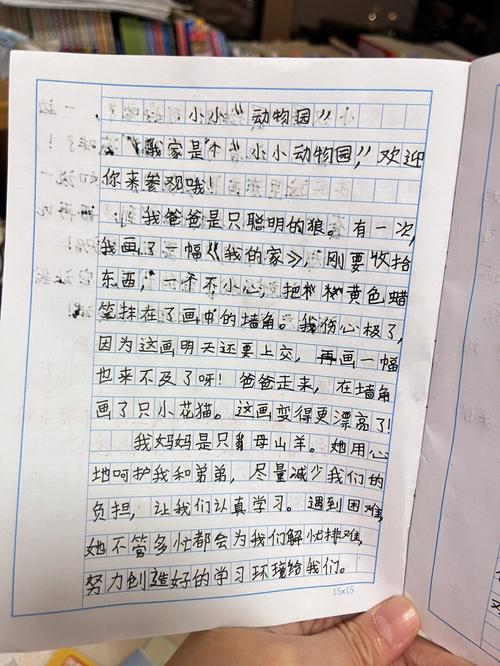 小小“动物园”
我家是个“小小动物园”，欢迎
你来参观哦！
我爸爸是只聪明的狼。有一次，
我画了一幅《我的家》，刚要收拾
东西，一不小心，把黄色蜡
笔抹在了画中的墙角。我伤心极了，
因为这画明天还要上交，再画一幅
也来不及了呀！爸爸走来，在墙角
画了只小花猫。这画变得更漂亮了！
我妈妈是只母山羊。她用心
地呵护我和弟弟，尽量减少我们的
负担，让我们认真学习。遇到困难，
她不管多忙都会为我们解忧排难，
努力创造好的学习环境给我们。
15x15